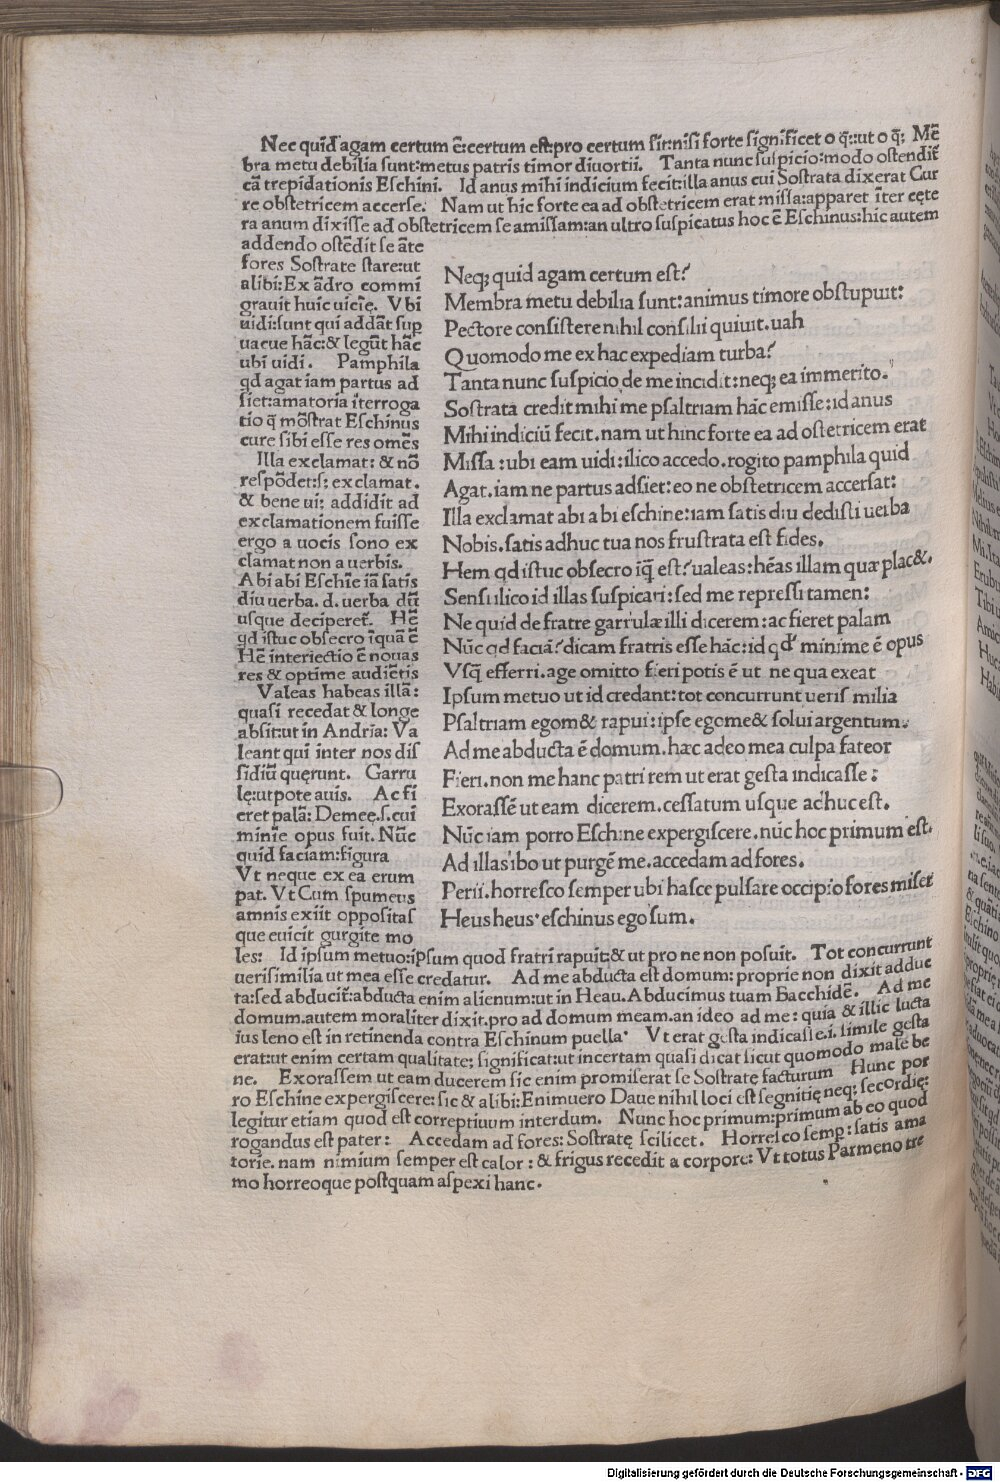 Nec quid agam certum ē:certum est:pro certum sit:nisi forte significet o q̄:ut o q̄; Mē
bra metu debilia sunt:metus patris timor diuortii. Tanta nunc suspicio:modo ostendit
cā trepidationis Eschini. Id anus mihi indicium fecit:illa anus cui Sostrata dixerat Cur
re obstetricem accerse. Nam ut hic forte ea ad obstetricem erat missa:apparet īter cęte
ra anum dixisse ad obstetricem se amissam:an ultro suspicatus hoc ē Eschinus:hic autem
addendo ostēdit se āte
fores Sostrate stare:ut
alibi:Ex ādro commi
grauit huic uicīę. Vbi
uidi:sunt qui addāt sup
uacue hāc:& legūt hāc
ubi uidi. Pamphila
qd agat iam partus ad
siet:amatoria īterroga
tio q̄ mōstrat Eschinus
cure sibi esse res omēs
Illa exclamat: & nō
respōdet:s; exclamat.
& bene ui; addidit ad
exclamationem fuisse
ergo a uocis sono ex
clamat non a uerbis.
Abi abi Eschīe iā satis
diu uerba. d. uerba dū
usque deciperet. Hē
qd istuc obsecro īquā ē
Hē interiectio ē nouas
res & optime audiētis
Valeas habeas illā:
quasi recedat & longe
absit:ut in Andria: Va
leant qui inter nos dis
sidiū quęrunt. Garru
lę:utpote auis. Ac fi
eret palā: Demeę.s.cui
minīe opus fuit. Nūc
quid faciam:figura
Vt neque ex ea erum
pat. Vt Cum spumeus
amnis exiit oppositas
que euicit gurgite mo
Neq; quid agam certum est?
Membra metu debilia sunt:animus timore obstupuit:
Pectore consistere nihil consilii quiuit.uah
Quomodo me ex hac expediam turba?
Tanta nunc suspicio de me incidit:neq; ea immerito.
Sostrata credit mihi me psaltriam hāc emisse:id anus
Mihi indiciū fecit.nam ut hinc forte ea ad ostetricem erat
Missa:ubi eam uidi:ilico accedo.rogito pamphila quid
Agat.iam ne partus adsiet:eo ne obstetricem accersat:
Illa exclamat abi abi eschine:iam satis diu dedisti uerba
Nobis.satis adhuc tua nos frustrata est fides.
Hem qd istuc obsecro īq̄ est?ualeas:hēas illam quæ plac&.
Sensi ilico id illas suspicari:sed me repressi tamen:
Ne quid de fratre garrulæ illi dicerem:ac fieret palam
Nūc qd faciā?dicam fratris esse hāc:id qd minime ē opus
Vsq̄ efferri.age omitto fieri potis ē ut ne qua exeat
Ipsum metuo ut id credant:tot concurrunt ueris milia
Psaltriam egom& rapui:ipse egome& solui argentum.
Ad me abducta ē domum.hæc adeo mea culpa fateor
Fieri.non me hanc patri rem ut erat gesta indicasse:
Exorassē ut eam dicerem.cessatum usque adhuc est.
Nūc iam porro Eschine expergiscere.nūc hoc primum est.
Ad illas ibo ut purgē me.accedam ad fores.
Perii.horresco semper ubi hasce pulsare occipio fores miser
Heus heus eschinus ego sum.
les: Id ipsum metuo:ipsum quod fratri rapuit:& ut pro ne non posuit. Tot concurrunt
uerisimilia ut mea esse credatur. Ad me abducta est domum: proprie non dixit adduc
ta:sed abducit̄:abducta enim alienum:ut in Heau.Abducimus tuam Bacchidē. Ad me
domum.autem moraliter dixit.pro ad domum meam.an ideo ad me: quia & illic lucta
ius leno est in retinenda contra Eschinum puella Vt erat gesta indicasse.i. simile gesta
erat:ut enim certam qualitatē; significat:ut incertam quasi dicat sicut quomodo male be
ne. Exorassem ut eam ducerem sic enim promiserat se Sostratę facturum Hunc por
ro Eschine expergiscere:sic & alibi:Enimuero Daue nihil loci est segnitię neq; secordię:
legitur etiam quod est correptiuum interdum. Nunc hoc primum:primum ab eo quod
rogandus est pater: Accedam ad fores: Sostratę scilicet. Horresco semp:satis ama
torie.nam nimium semper est calor: & frigus recedit a corpore: Vt totus Parmeno tre
mo horreoque postquam aspexi hanc.
Digitalisierung gefördert durch die Deutsche Forschungsgemeinschaft - DFG